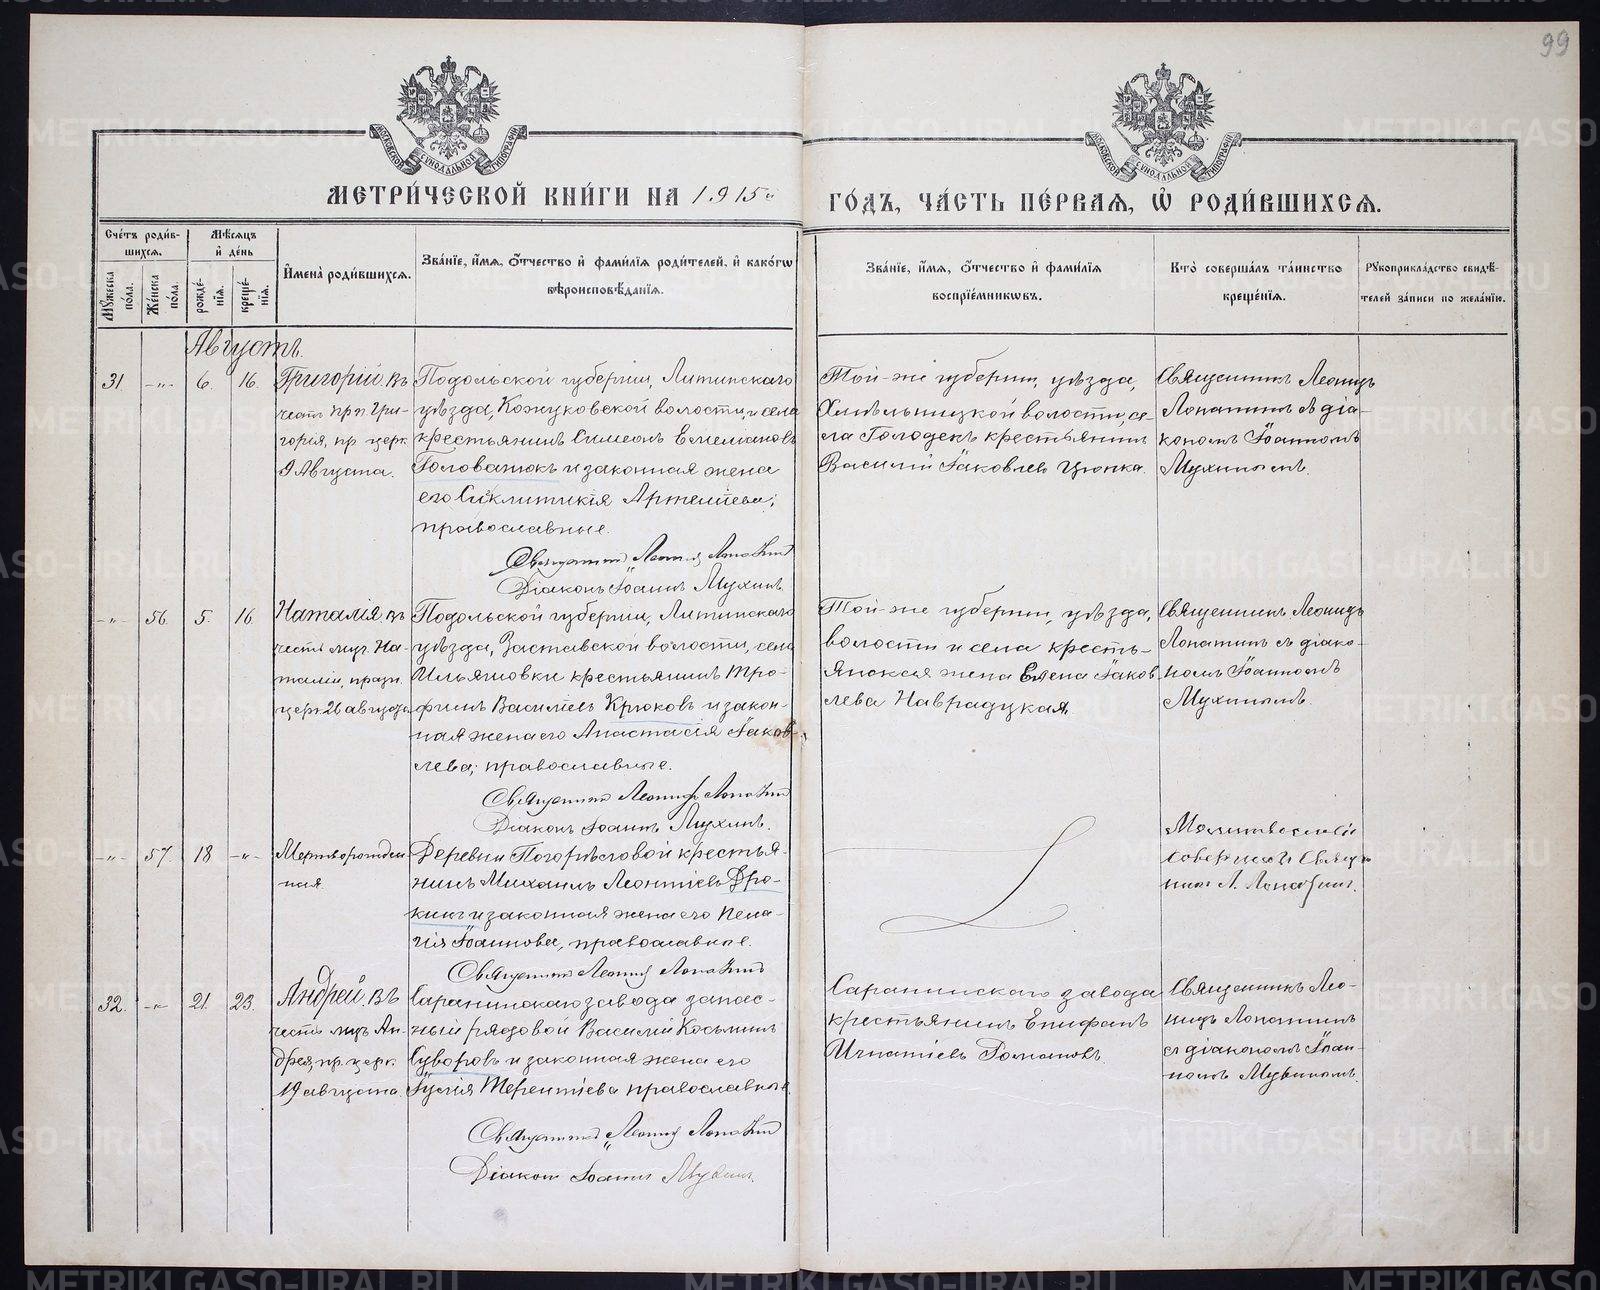 99
МОСКОВСКОЙ СѴНОДАЛЬНОЙ ТИПОГРАФІИ
МОСКОВСКОЙ СѴНОДАЛЬНОЙ ТИПОГРАФІИ
МЕТРИ́ЧЕСКОЙ КНИ́ГИ НА 1915й
ГО́ДЪ, ЧА́СТЬ ПЕ́РВАѦ, Ѡ҆ РОДИ́ВШИХСѦ.
Счётъ роди́вшихсѧ.
Мѣ́сѧцъ и҆ де́нь
И҆мена̀ роди́вшихсѧ.
Зва́нїе, и҆́мѧ, ѻ҆́тчество и҆ фами́лїѧ роди́телей, и҆ како́гѡ
вѣроисповѣ́данїѧ.
Зва́нїе, и҆́мѧ, ѻ҆́тчество и҆ фами́лїѧ
воспрїе́мникѡвъ.
Кто̀ соверша́лъ та́инство
креще́нїѧ.
Рꙋкоприкла́дство свидѣ́-
телей за́писи по жела́нїю.
Мꙋ́жеска по́ла.
Же́нска по́ла.
рожде́нїѧ.
креще́нїѧ.
Августъ.
31. -„- 6. 16.
Григорій въ
честь прп Гри-
горія, пр. церк
9 Августа.
Подольской губерніи, Литинскаго
уѣзда, Кожуковской волости, и села
крестьянинъ Симеонъ Емеліановъ
Головатюкъ и законная жена
его Сиклитикія Артеміева;
православные.
Священникъ Леонидъ Лопатинъ
Діаконъ Іоаннъ Мухинъ.
Той-же губерніи, уѣзда,
Хмѣльницкой волости, се-
ла Голодекъ крестьянинъ
Василій Іаковлевъ Цюпка.
Священникъ Леонидъ
Лопатинъ съ діа-
кономъ Іоанномъ
Мухинымъ.
-„- 56. 5. 16.
Наталія въ
честь муч. На-
таліи, празн.
церк. 26 августа
Подольской губерніи, Литинскаго
уѣзда, Заставской волости, села
Ильяшовки крестьянинъ Тро-
фимъ Василіевъ Крюковъ и закон-
ная жена его Анастасія Іаков-
лева; православные.
Священникъ Леонидъ Лопатинъ
Діаконъ Іоаннъ Мухинъ.
Той-же губерніи, уѣзда,
волости и села кресть-
янская жена Елена Іаков
лева Наврадуцкая.
Священникъ Леонидъ
Лопатинъ съ діако-
номъ Іоанномъ
Мухинымъ
-„- 57. 18 -„-
Мертворожден
ная.
Деревни Погорѣловой крестья-
нинъ Михаилъ Леонтіевъ Дро-
кинъ и законная жена его Пела-
гія Іоаннова, православные.
Священникъ Леонидъ Лопатинъ
Молитвословіе
совершалъ Священ
никъ Л. Лопатинъ.
32. -„- 21. 23.
Андрей, въ
честь муч. Ан-
дрея, пр. церк.
19 августа.
Саранинскаго завода запас-
ный рядовой Василій Косьминъ
Суворовъ и законная жена его
Іулія Терентіева православные
Священникъ Леонидъ Лопатинъ
Діаконъ Іоаннъ Мухинъ.
Саранинскаго завода
крестьянинъ Епифанъ
Игнатіевъ Романовъ.
Священникъ Лео-
нидъ Лопатинъ
съ діакономъ Іоан-
номъ Мухинымъ.
METRIKI.GASO-URAL.RU